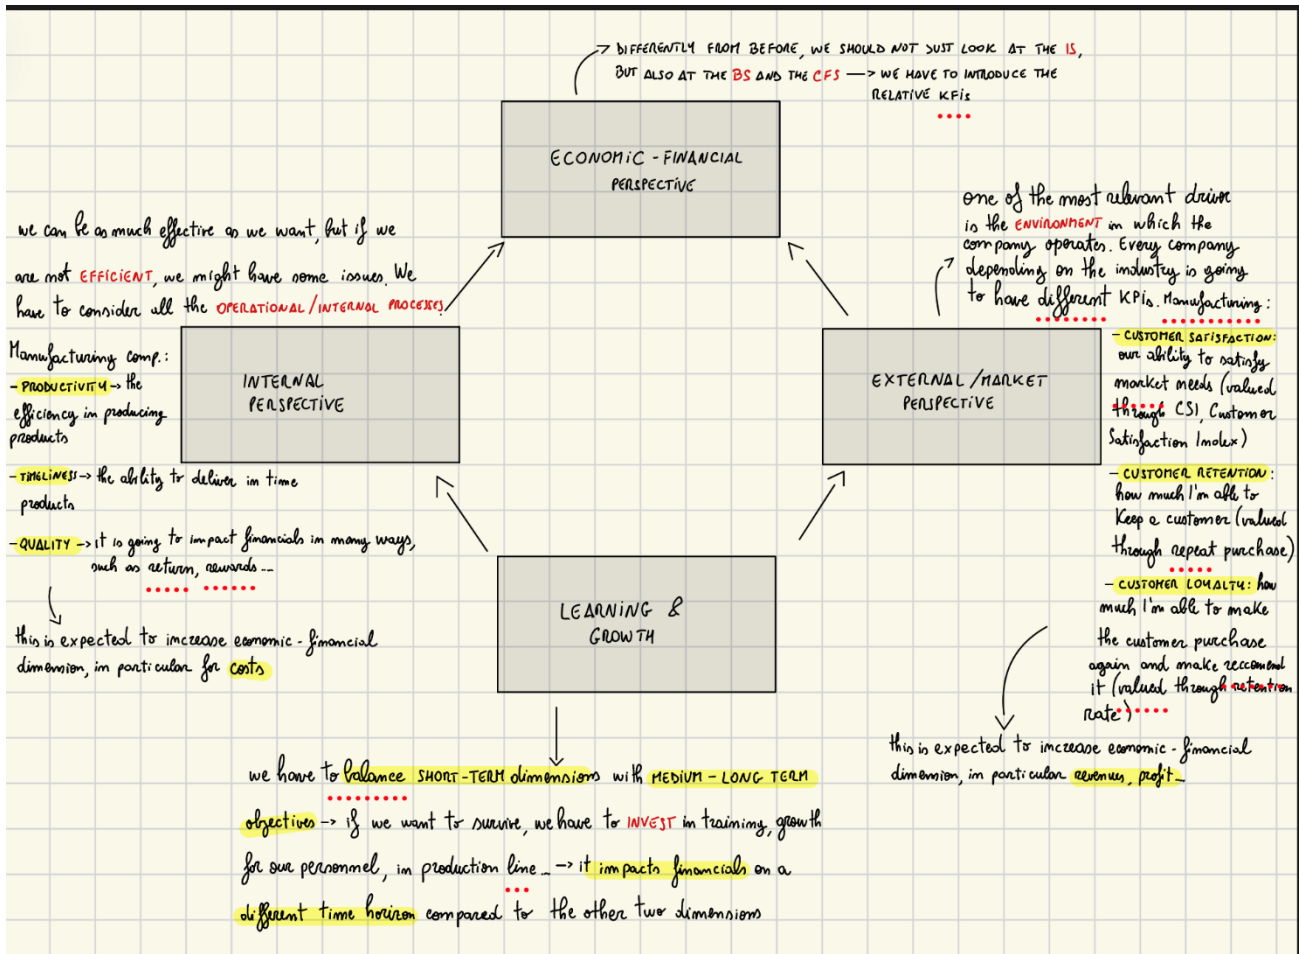 DIFFERENTLY FROM BEFORE, WE SHOULD NOT JUST LOOK AT THE IS,
BUT ALSO AT THE BS AND THE CFS —> WE HAVE TO INTRODUCE THE
RELATIVE KFIs
ECONOMIC - FINANCIAL
PERSPECTIVE
we can be as much effective as we want, but if we
are not EFFICIENT, we might have some issues. We
have to consider all the OPERATIONAL/INTERNAL PROCESSES.
Manufacturing comp.:
- PRODUCTIVITY -> the
efficiency in producing
products
- TIMELINESS -> the ability to deliver in time
products
- QUALITY -> it is going to impact financials in many ways,
such as return, rewards ...
this is expected to increase economic - financial
dimension, in particular for costs
INTERNAL
PERSPECTIVE
one of the most relevant driver
is the ENVIRONMENT in which the
company operates. Every company
depending on the industry is going
to have different KPIs. Manufacturing:
- CUSTOMER SATISFACTION:
our ability to satisfy
market needs (valued
through CSI, Customer
Satisfaction Index)
- CUSTOMER RETENTION:
how much I'm able to
keep a customer (valued
through repeat purchase)
- CUSTOMER LOYALTY: how
much I'm able to make
the customer purchase
again and make reccomend
it (valued through retention
rate)
this is expected to increase economic - financial
dimension, in particular revenues, profit ...
EXTERNAL / MARKET
PERSPECTIVE
LEARNING &
GROWTH
we have to balance SHORT-TERM dimensions with MEDIUM - LONG TERM
objectives -> if we want to survive, we have to INVEST in training, growth
for our personnel, in production line ... -> it impacts financials on a
different time horizon compared to the other two dimensions